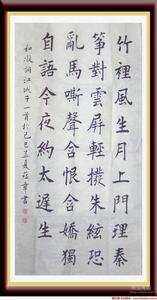 竹裡風生月上門理秦
箏對雲屏輕撥朱絃恐
亂馬嘶聲含恨含嬌獨
自語今夜約太遲生
和凝詞江城子一首於己巳孟夏 章書